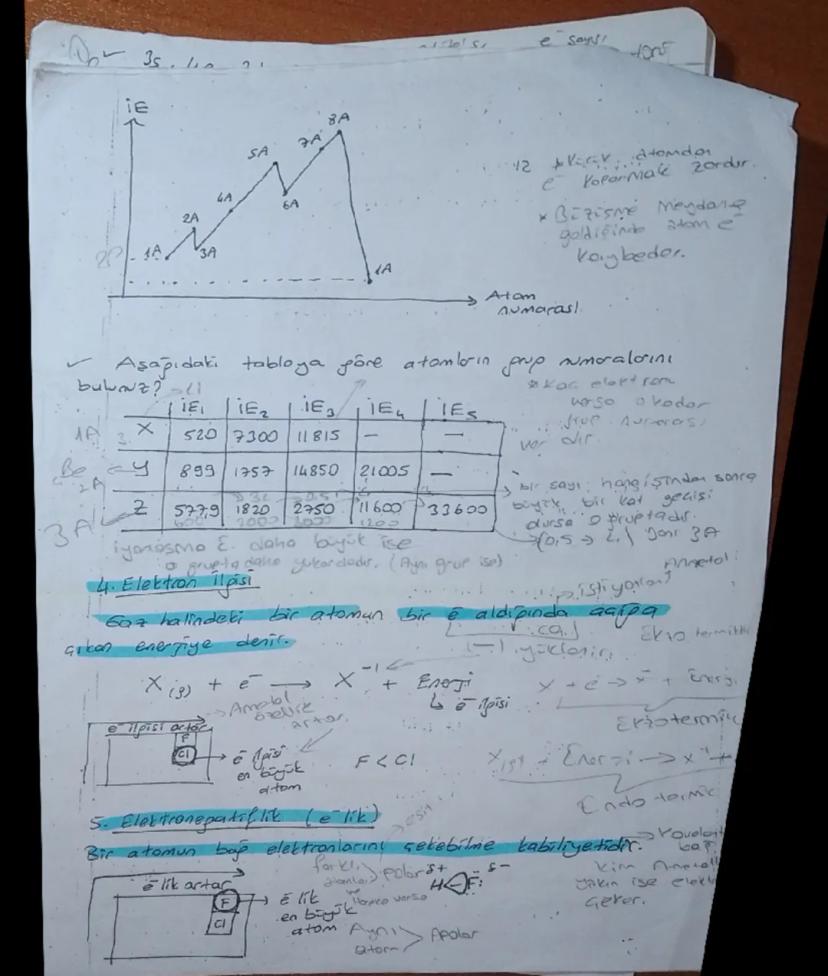 35
e⁻ sayısı
İE
8A
7A
5A
6A
4A
2A
1A
3A
1A
Atom
numarası
atomdan
e⁻ koparmak zordur.
* Büzüşme meydana
geldiğinde atom e⁻
kaybeder.
✓ Aşağıdaki tabloya göre atomların grup numaralarını
bulunuz?
* Kaç elektron
varsa o kadar
grup numarası
vardır.
İE₁ İE₂ İE₃ İE₄ İE₅
1A X 520 7300 11815 — —
Be 2A Y 899 1757 14850 21005 —
3A Z 577,9 1820 2750 11600 33600
bir sayı hangisinden sonra
büyük bir kat geçişi
olursa o gruptadır.
yani 3A
iyonlaşma E. daha büyük ise
o grupta daha yukarıdadır. (Aynı grup ise)
4. Elektron İlgisi
Ametal
istiyorlar
Gaz halindeki bir atomun bir e⁻ aldığında açığa
çıkan enerjiye denir.
(-) yüklenir.
Ekzotermik
X(g) + e⁻ → X⁻¹ + Enerji
e⁻ ilgisi
X + e⁻ → X⁻ + Enerji
Ekzotermik
Ametal
özellik
artar.
e⁻ ilgisi artar
F
Cl
e⁻ ilgisi
en büyük
atom
F < Cl
X(g) + Enerji → X⁺ +
Endotermik
5. Elektronegatiflik (e⁻lik)
Bir atomun bağ elektronlarını çekebilme kabiliyetidir.
Kovalent
bağ
kim Ametal
yakın ise elekt
çeker.
e⁻lik artar
F
Cl
e⁻lik
en büyük
atom
farklı
polar
δ+ δ-
H F
Aynı
atom
Apolar